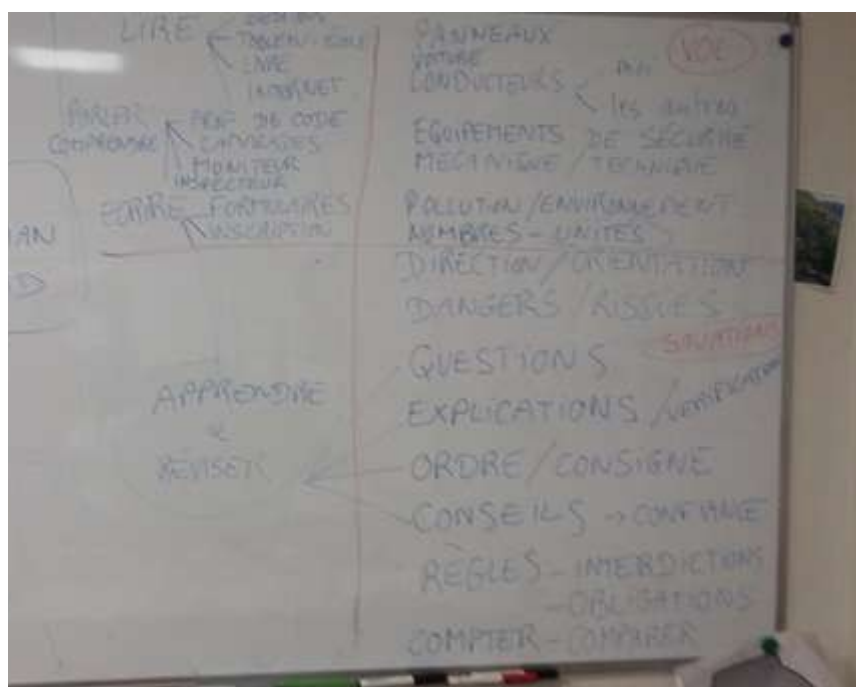 LIRE
LIVRE
INTERNET
PARLER PROF DE CODE
COMPRENDRE CAMARADES
MONITEUR
INSPECTEUR
ECRIRE FORMULAIRES
INSCRIPTION
APPRENDRE
&
RÉVISER
VOC
PANNEAUX
VOITURE
CONDUCTEURS
les autres
EQUIPEMENTS DE SÉCURITÉ
MECANIQUE / TECHNIQUE
POLLUTION / ENVIRONNEMENT
NOMBRES - UNITES
DIRECTION / ORIENTATION
DANGERS / RISQUES
SITUATIONS
QUESTIONS
EXPLICATIONS /
ORDRE / CONSIGNE
CONSEILS → CONFIANCE
RÈGLES - INTERDICTIONS
- OBLIGATIONS
COMPTER - COMPARER